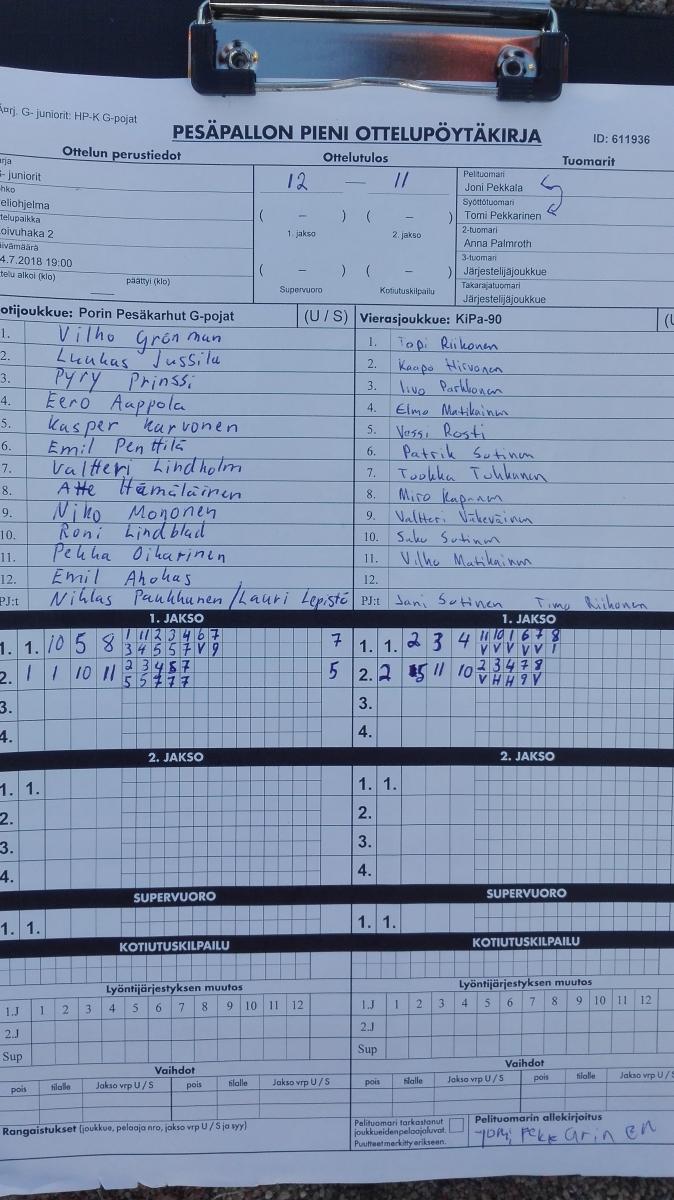 Ärj. G- juniorit: HP-K G-pojat
PESÄPALLON PIENI OTTELUPÖYTÄKIRJA ID: 611936
Ottelun perustiedot Ottelutulos Tuomarit
12 — 11
Pelituomari
Joni Pekkala
Syöttötuomari
Tomi Pekkarinen
2-tuomari
Anna Palmroth
3-tuomari
Järjestelijäjoukkue
Takarajatuomari
Järjestelijäjoukkue
rja
- juniorit
hko
eliohjelma
telupaikka
oivuhaka 2
äivämäärä
4.7.2018 19:00
telu alkoi (klo) päättyi (klo)
( – ) ( – )
1. jakso 2. jakso
( – ) ( – )
Supervuoro Kotiutuskilpailu
otijoukkue: Porin Pesäkarhut G-pojat (U / S)
1. Vilho Grönman
2. Luukas Jussila
3. Pyry Prinssi
4. Eero Aappola
5. Kasper Karvonen
6. Emil Penttilä
7. Valtteri Lindholm
8. Atte Hämäläinen
9. Niko Mononen
10. Roni Lindblad
11. Pekka Oikarinen
12. Emil Ahokas
PJ:t Niklas Paukkunen / Lauri Lepistö
Vierasjoukkue: KiPa-90 (U
1. Topi Riikonen
2. Kaapo Hirvonen
3. Iivo Parkkonen
4. Elmo Matikainen
5. Vessi Rosti
6. Patrik Sutinen
7. Tuukka Tukkunen
8. Miro Kapanen
9. Valtteri Väkeväinen
10. Saku Sutinen
11. Vilho Matikainen
12.
PJ:t Jani Sutinen Timo Riikonen
1. JAKSO 1. JAKSO
1. 1. 10 5 8 1 11 2 3 4 6 7 7
3 4 5 5 7 V 9
2. 1 1 10 11 2 3 4 5 7 5
5 5 7 7 7
3.
4.
1. 1. 2 3 4 11 10 1 6 7 8
V V V V V 1
2. 2 5 11 10 2 3 4 7 8
V H H 9 V
3.
4.
2. JAKSO 2. JAKSO
1. 1. 1. 1.
2. 2.
3. 3.
4. 4.
SUPERVUORO SUPERVUORO
1. 1. 1. 1.
KOTIUTUSKILPAILU KOTIUTUSKILPAILU
Lyöntijärjestyksen muutos Lyöntijärjestyksen muutos
1.J 1 2 3 4 5 6 7 8 9 10 11 12 1.J 1 2 3 4 5 6 7 8 9 10 11 12
2.J 2.J
Sup Sup
Vaihdot Vaihdot
pois tilalle Jakso vrp U / S pois tilalle Jakso vrp U / S pois tilalle Jakso vrp U / S pois tilalle Jakso vrp U / S
Rangaistukset (joukkue, pelaaja nro, jakso vrp U / S ja syy)
Pelituomari tarkastanut
joukkueiden pelaajaluvat.
Puutteet merkitty erikseen.
Pelituomarin allekirjoitus
Tomi Pekkarinen